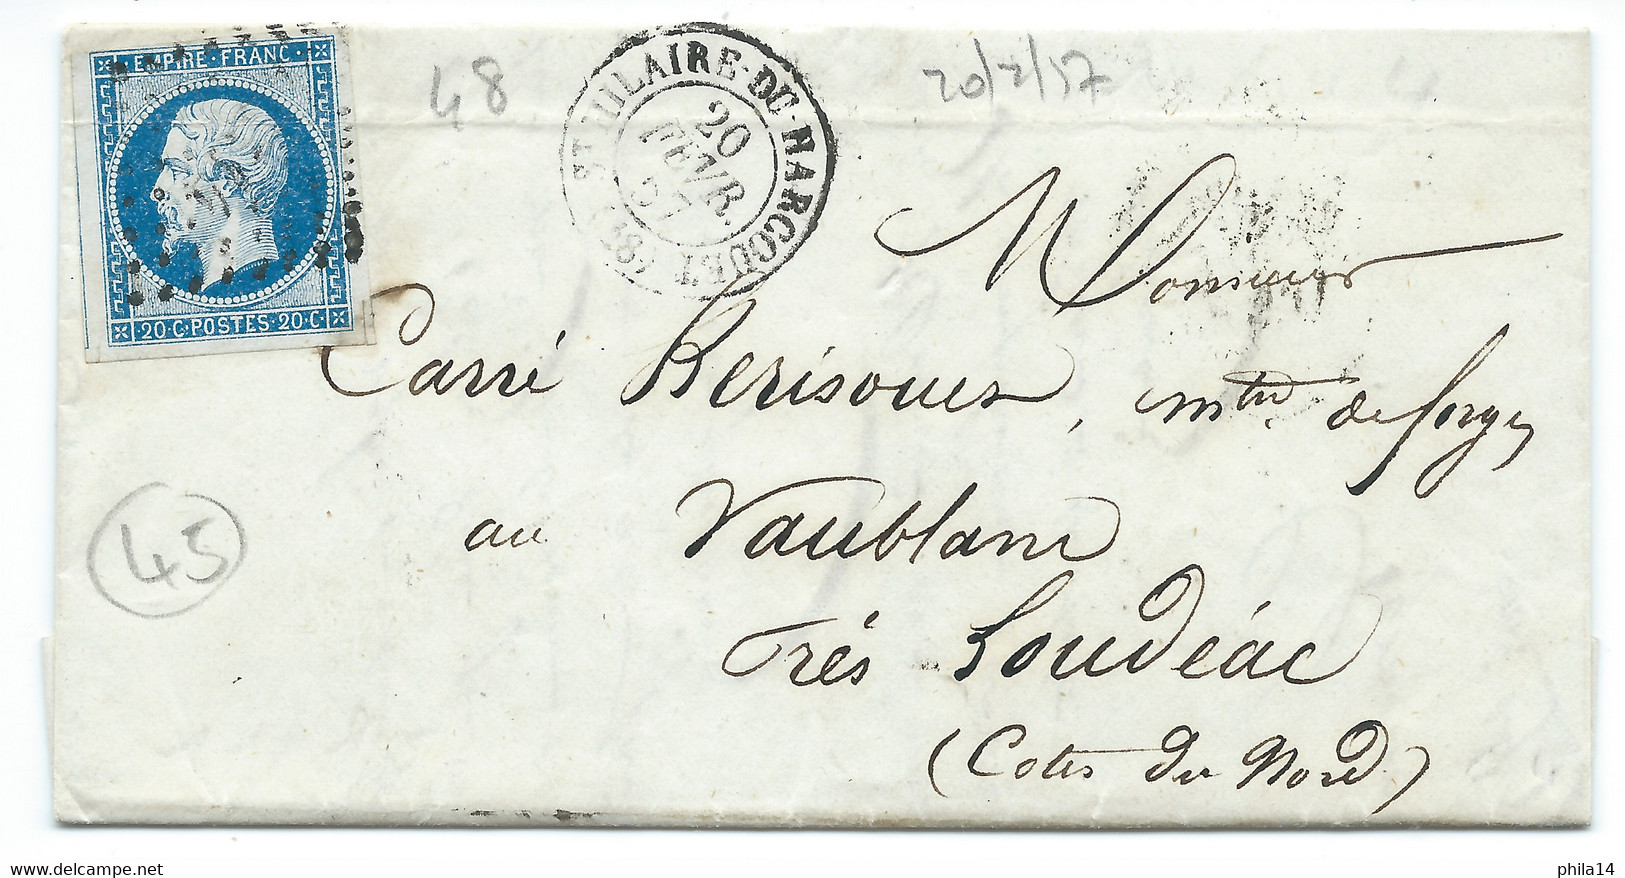 EMPIRE · FRANC ·
20 · C · POSTES · 20 · C ·
48
ST HILAIRE-DU-HARCOUET (48)
20
FEVR.
57
20/2/57
Monsieur
Carré Kerisouet, mtre de forges
au Vaublanc
45
Près Loudéac
(Cotes du Nord)
phila14